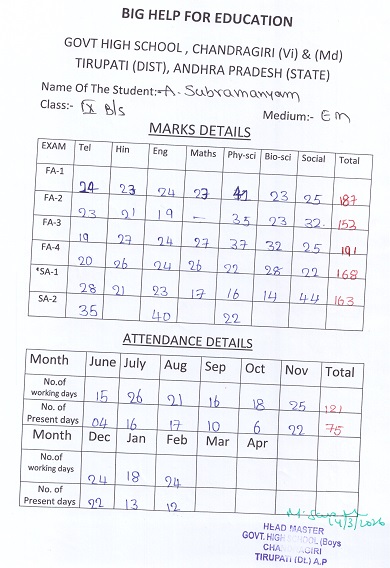 BIG HELP FOR EDUCATION
GOVT HIGH SCHOOL , CHANDRAGIRI (Vi) & (Md)
TIRUPATI (DIST), ANDHRA PRADESH (STATE)
Name Of The Student:- A. Subramanyam
Class:- IX B/s Medium:- EM
MARKS DETAILS
EXAM Tel Hin Eng Maths Phy-sci Bio-sci Social Total
FA-1 24 23 24 27 41 23 25 187
FA-2 23 21 19 - 35 23 32 153
FA-3 19 27 24 27 37 32 25 191
FA-4 20 26 24 26 22 28 22 168
*SA-1 28 21 23 17 16 14 44 163
SA-2 35 40 22
ATTENDANCE DETAILS
Month June July Aug Sep Oct Nov Total
No.of working days 15 26 21 16 18 25 121
No. of Present days 04 16 17 10 6 22 75
Month Dec Jan Feb Mar Apr
No.of working days 24 18 24
No. of Present days 22 13 12
14/3/2026
HEAD MASTER
GOVT. HIGH SCHOOL (Boys
CHANDRAGIRI
TIRUPATI (Dt.) A.P